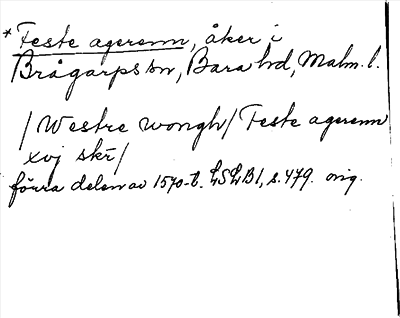 * Feste agerenn, åker i
Brågarps sn, Bara hd, Malm. l.
/Westre wongh/ Feste agerenn
xvj skr/
förra delen av 1570-t. LSLB1, s. 479. orig.